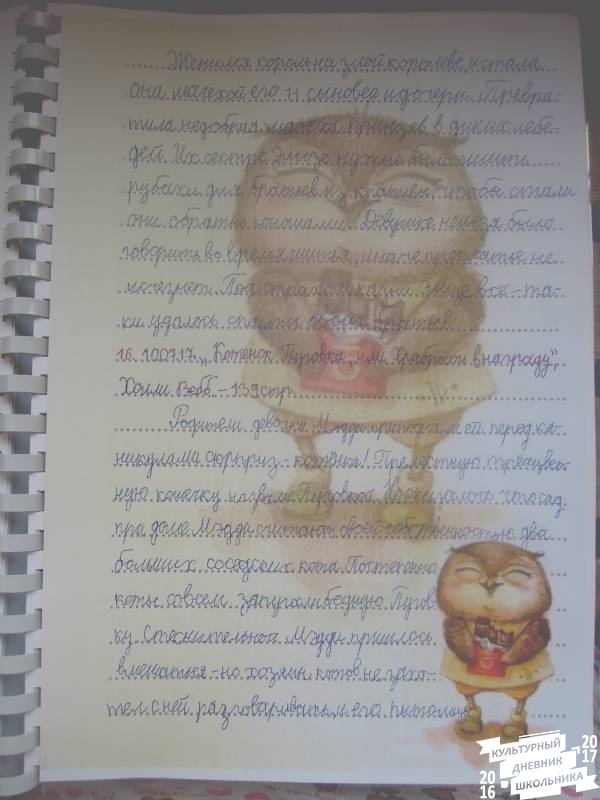 Женился король на злой королеве, и стала
она мачехой его 11 сыновей и дочери. Превра-
тила недобрая мачеха принцев в диких лебе-
дей. Их сестре Элизе нужно было сшить
рубахи для братьев из крапивы, чтобы стали
они обратно юношами. Девушке нельзя было
говорить во время шитья, иначе проклятье не
исчезнет. Под страхом казни Элизе всё-та-
ки удалось спасти своих братьев.
16. 10.07.17. „Котёнок Пуговка, или Храбрость в награду",
Холли Вебб – 139стр.
Родители девочки Мэдди перед ка-
никулами сюрприз – котёнка! Прелестную трёхцвет-
ную кошечку назвали Пуговкой. Но оказалось, что сад
при доме Мэдди считают своей собственностью два
больших соседских кота. Постепенно
коты совсем запугали бедную Пугов-
ку. Стеснительной Мэдди пришлось
вмешаться – но хозяин котов не захо-
тел с ней разговаривать, и его питомцы
КУЛЬТУРНЫЙ
ДНЕВНИК
ШКОЛЬНИКА
2016
2017